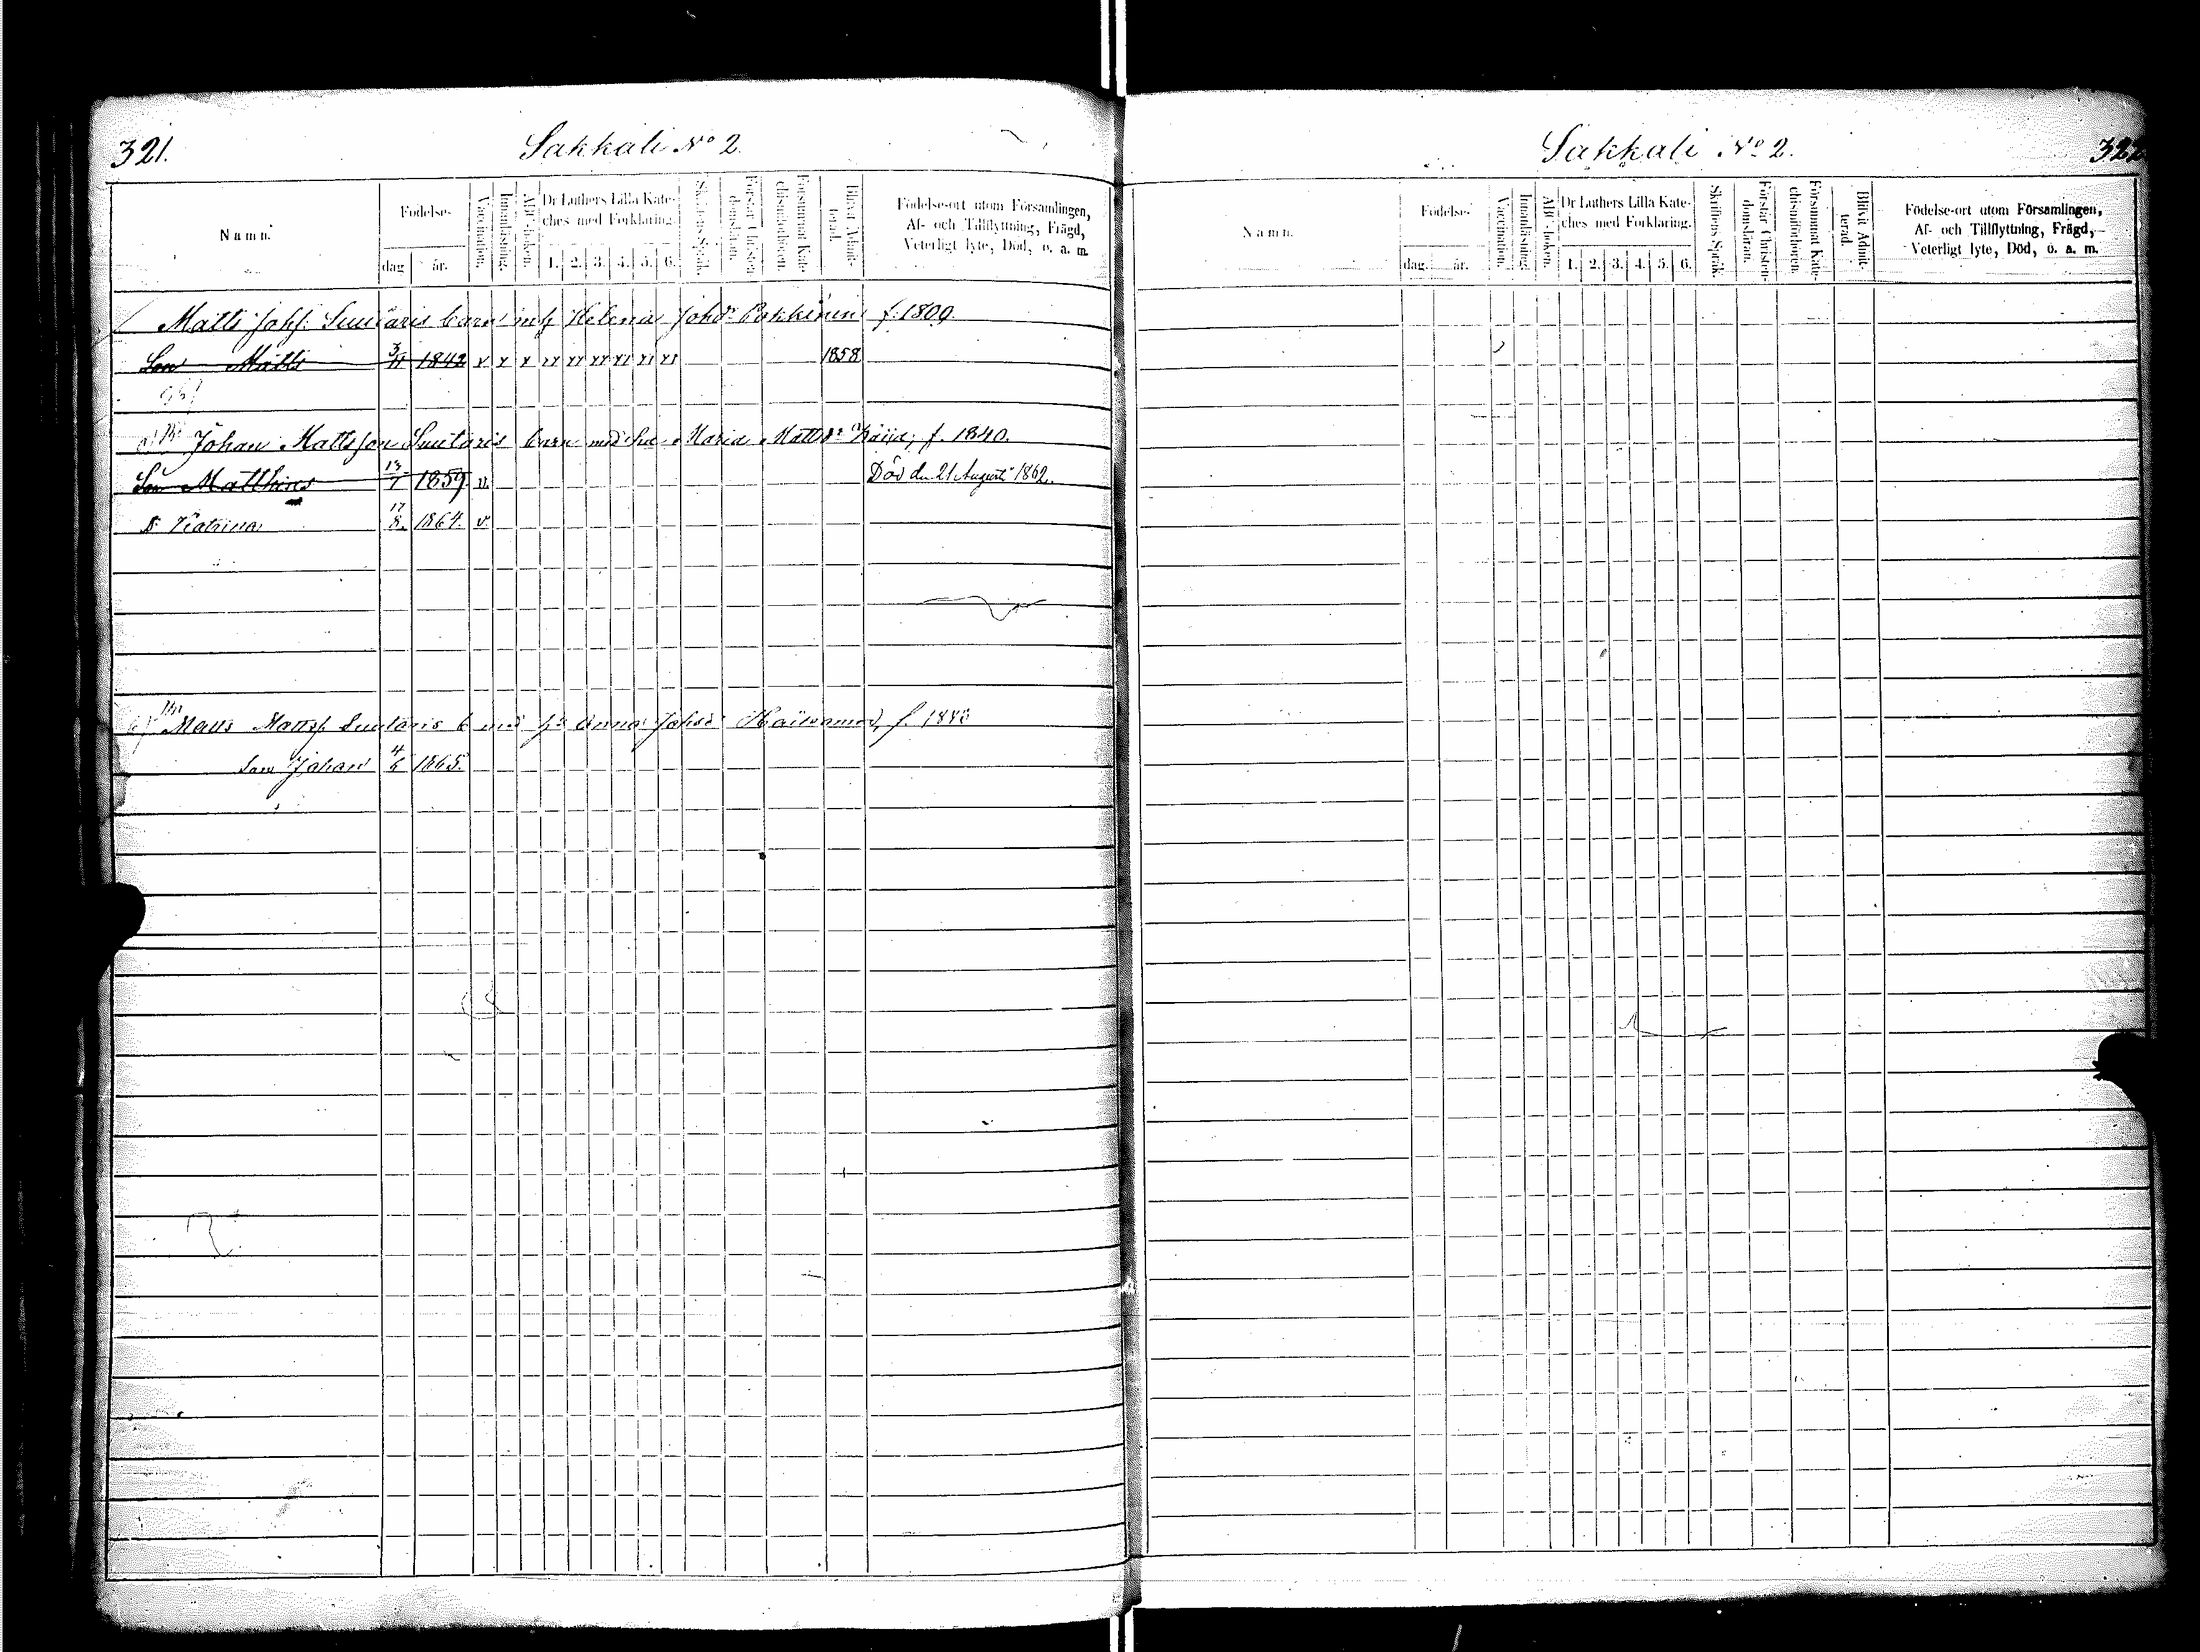 321.
Sakkali No 2.
Namn.
Födelse-
dag
år.
Vaccination.
Innanläsning.
ABC-boken.
Dr Luthers Lilla Kate-
ches med Förklaring.
1. 2. 3. 4. 5. 6.
Skriftens Språk.
Förstår Christen-
domsläran.
Försummat Kate-
chismiförhören.
Blifvit Admit-
terad.
Födelse-ort utom Församlingen,
Af- och Tillflyttning, Frägd,
Veterligt lyte, Död, o. a. m.
Matts Johss: Suutaris barn m. h. Helena Johdr Pukkinen f. 1809.
Son Matts 3/11 1842 v x x xx xx xx xx xx xx 1858
Johan Mattsson Suutaris barn med hu Maria Mattsdr f. 1840.
Son Matthias 13/7 1859 v. Död den 21 Augusti 1862.
D. Katrina 17/8. 1864. v.
Matts Mattss. Suutaris b med h. Anna Johsdr f. 18
Son Johan 4/6 1865.
Sakkali No 2.
322
Namn.
Födelse-
dag.
år.
Vaccination.
Innanläsning.
ABC-boken.
Dr Luthers Lilla Kate-
ches med Förklaring.
1. 2. 3. 4. 5. 6.
Skriftens Språk.
Förstår Christen-
domsläran.
Försummat Kate-
chismiförhören.
Blifvit Admit-
terad.
Födelse-ort utom Församlingen,
Af- och Tillflyttning, Frägd,
Veterligt lyte, Död, o. a. m.